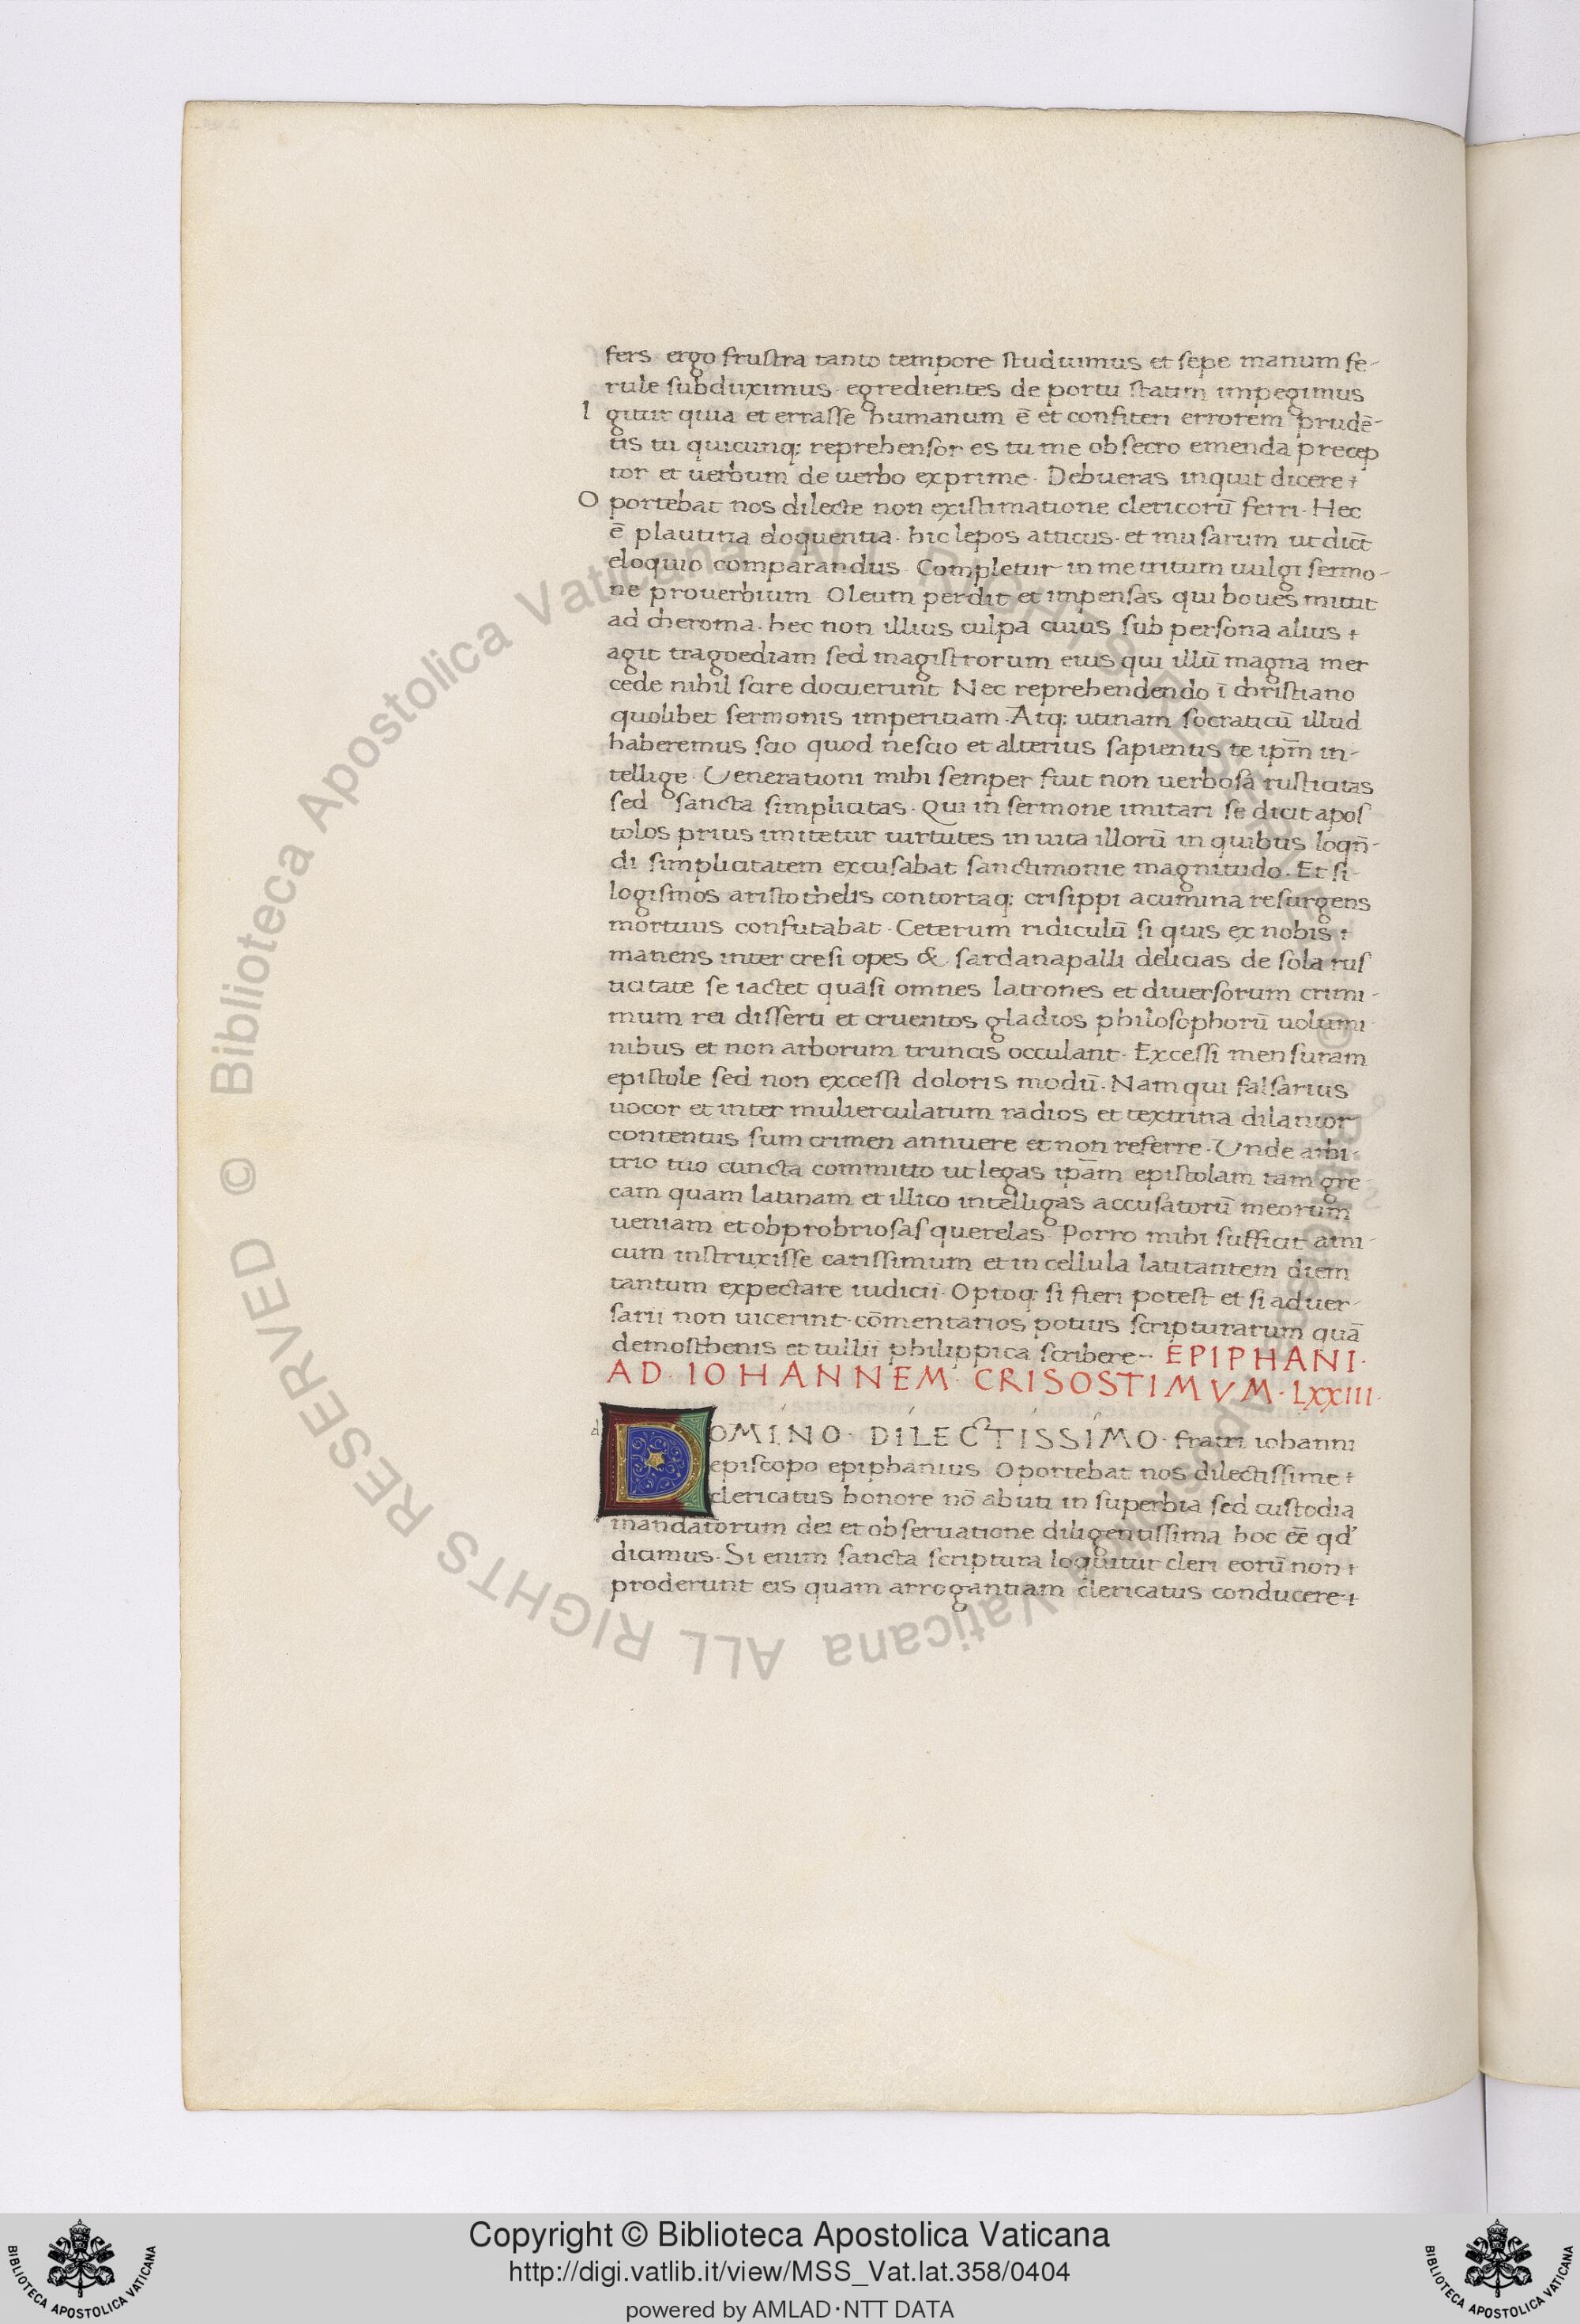 fers ergo frustra tanto tempore studuimus et sepe manum fe-
rule subduximus. egredientes de portu statim impegimus
I gitur quia et errasse humanum ē et confiteri errorem prudē-
tis tu quicunq; reprehensor es tu me obsecro emenda precep
tor et uerbum de uerbo exprime. Debueras inquit dicere
O portebat nos dilecte non existimatione clericorū ferri. Hec
ē plautina eloquentia. hic lepos atticus. et musarum ut dict
eloquio comparandus. Completur in me tritum uulgi sermo-
ne prouerbium Oleum perdit et impensas qui boues mittit
ad cheroma. hec non illius culpa cuius sub persona alius
agit tragoediam sed magistrorum eius qui illū magna mer
cede nihil scire docuerunt Nec reprehendendo ī christiano
quolibet sermonis imperitiam. Atq; utinam socraticū illud
haberemus scio quod nescio et alterius sapientis te ipm̄ in-
tellige. Venerationi mihi semper fuit non uerbosa rusticitas
sed sancta simplicitas. Qui in sermone imitari se dicit apos
tolos prius imitetur uirtutes in uita illorū in quibus loqn̄-
di simplicitatem excusabat sanctimonie magnitudo. Et si-
logismos aristothelis contortaq; crisippi acumina resurgens
mortuus confutabat. Ceterum ridiculū si quis ex nobis
manens inter cresi opes & sardanapalli delicias de sola rus
ticitate se iactet quasi omnes latrones et diuersorum crimi-
mum rei disserti et cruentos gladios philosophorū uolumi-
nibus et non arborum truncis occulant. Excessi mensuram
epistole sed non excessi doloris modū. Nam qui falsarius
uocor et inter muliercularum radios et textrina dilanior
contentus sum crimen annuere et non referre. Unde arbi-
trio tuo cuncta committo ut legas ipām epistolam tam gre
cam quam latinam et illico intelligas accusatorū meorum
ueniam et obprobriosas querelas. Porro mihi sufficit ami-
cum instruxisse carissimum et in cellula latitantem diem
tantum expectare iudicii. Optoq; si fieri potest et si aduer-
sarii non uicerint. cōmentarios potius scripturarum quā
demosthenis et tullii philippica scribere~ EPIPHANI.
AD. IOHANNEM. CRISOSTIMVM. LXXIII.
d DOMINO. DILECTISSIMO. fratri iohanni
episcopo epiphanius Oportebat nos dilectissime
clericatus honore nō abuti in superbia sed custodia
mandatorum dei et obseruatione diligentissima hoc eē qd'
dicimus. Si enim sancta scriptura loquitur cleri eorū non
proderunt eis quam arrogantiam clericatus conducere
© Biblioteca Apostolica Vaticana ALL RIGHTS RESERVED © Biblioteca Apostolica Vaticana ALL RIGHTS RESERVED
BIBLIOTECA APOSTOLICA VATICANA
Copyright © Biblioteca Apostolica Vaticana
http://digi.vatlib.it/view/MSS_Vat.lat.358/0404
powered by AMLAD·NTT DATA
BIBLIOTECA APOSTOLICA VATICANA